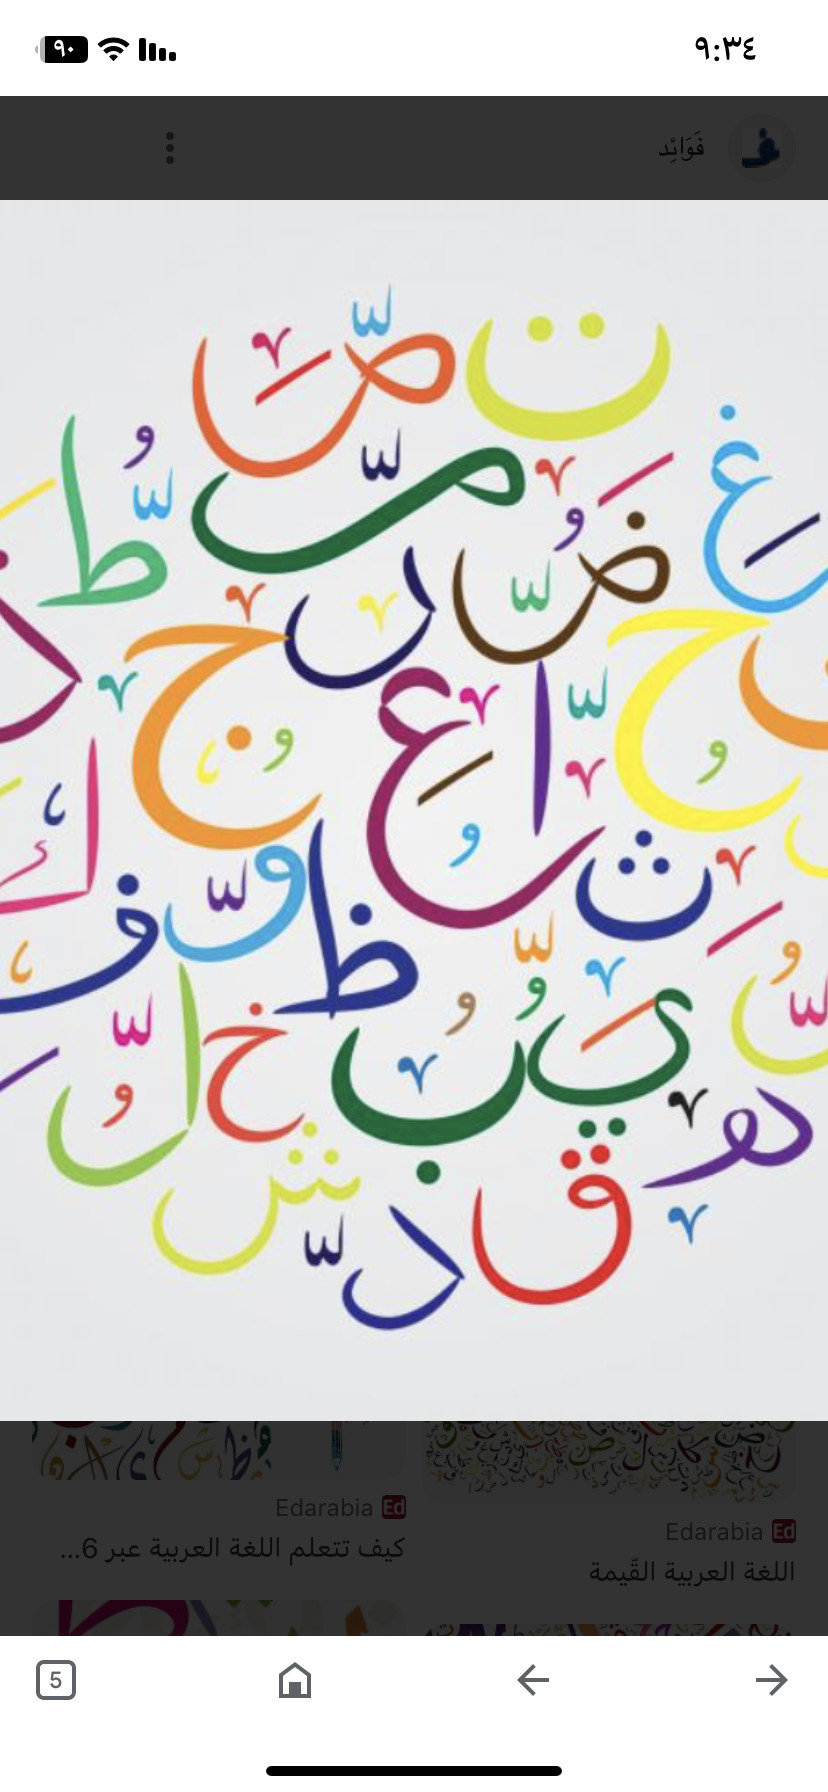 ٩:٣٤
٩٠
فَوَائِد
ت
صّ
م
غ
ط
ضّ
ر
ح
ج
ع
ا
ث
وّ
ظ
ف
ك
يّ
ب
خ
لّ
ه
ش
ق
د
Edarabia Ed
اللغة العربية القّيمة
Edarabia Ed
كيف تتعلم اللغة العربية عبر 6...
5